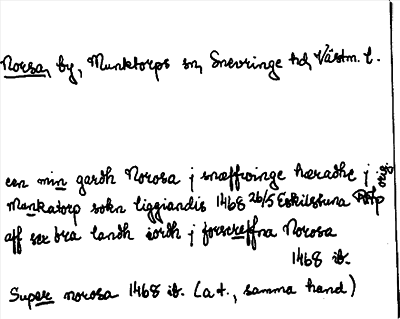 Norsa, by, Munktorps sn, Snevringe hd, Västm. l.
een min gardh Norosa j snæffwinge hæradhe j
Munkatorp sokn liggiandis 1468 26/5 Eskilstuna RAp orig.
aff sex øra landh iordh j forscreffna Norosa
1468 ib.
Super norosa 1468 ib. (a t., samma hand)